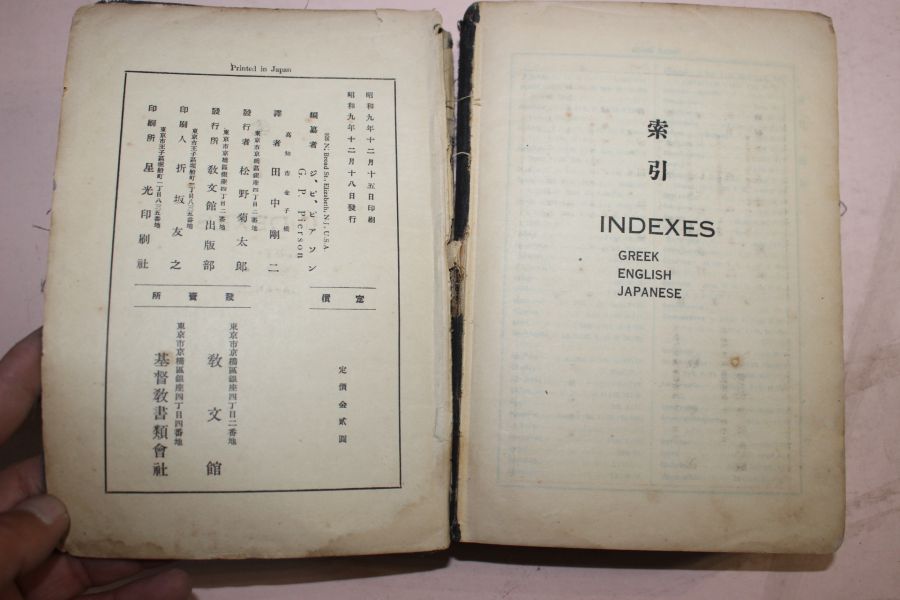 Printed in Japan
昭和九年十二月十五日印刷
昭和九年十二月十八日發行
編纂者 ジ、ピ、ピアソン
G. P. Pierson
N. Broad St., Elizabeth, N.J., U.S.A
高知市
譯者 田中剛二
東京市京橋區銀座四丁目二番地
發行者 松野菊太郎
東京市京橋區銀座四丁目二番地
發行所 敎文館出版部
東京市王子區堀船町一丁目八三五番地
印刷人 折坂友之
東京市王子區堀船町一丁目八三五番地
印刷所 星光印刷社
定價
發賣所
定價金貳圓
東京市京橋區銀座四丁目二番地
敎文館
東京市京橋區銀座四丁目四番地
基督敎書類會社
索引
INDEXES
GREEK
ENGLISH
JAPANESE